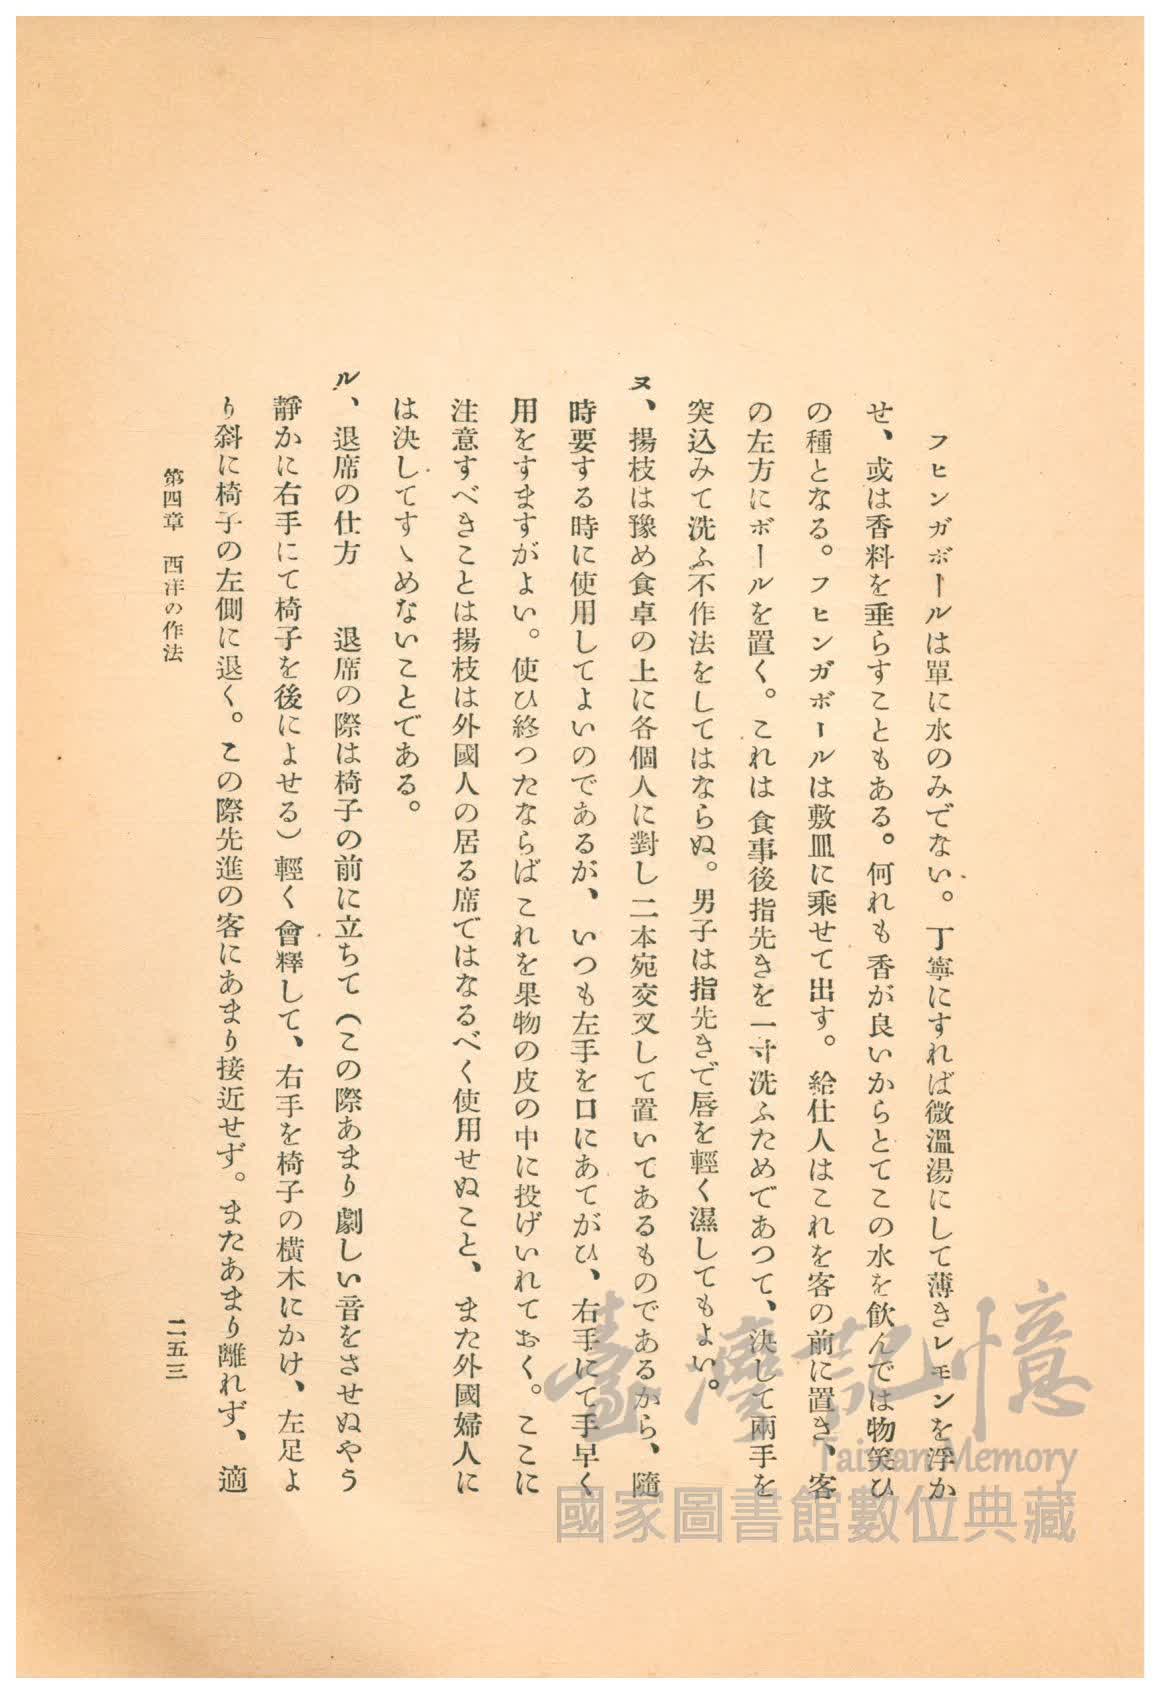 フヒンガボールは單に水のみでない。丁寧にすれば微溫湯にして薄きレモンを浮か
せ、或は香料を垂らすこともある。何れも香が良いからとてこの水を飮んでは物笑ひ
の種となる。フヒンガボールは敷皿に乘せて出す。給仕人はこれを客の前に置き、客
の左方にボールを置く。これは食事後指先きを一寸洗ふためであつて、決して兩手を
突込みて洗ふ不作法をしてはならぬ。男子は指先きで唇を輕く濕してもよい。
ヌ、揚枝は豫め食卓の上に各個人に對し二本宛交叉して置いてあるものであるから、隨
時要する時に使用してよいのであるが、いつも左手を口にあてがひ、右手にて手早く
用をすますがよい。使ひ終つたならばこれを果物の皮の中に投げいれておく。ここに
注意すべきことは揚枝は外國人の居る席ではなるべく使用せぬこと、また外國婦人に
は決してすゝめないことである。
ル、退席の仕方 退席の際は椅子の前に立ちて(この際あまり劇しい音をさせぬやう
靜かに右手にて椅子を後によせる)輕く會釋して、右手を椅子の橫木にかけ、左足よ
り斜に椅子の左側に退く。この際先進の客にあまり接近せず。またあまり離れず、適
第四章 西洋の作法
二五三
臺灣記憶
Taiwan Memory
國家圖書館數位典藏